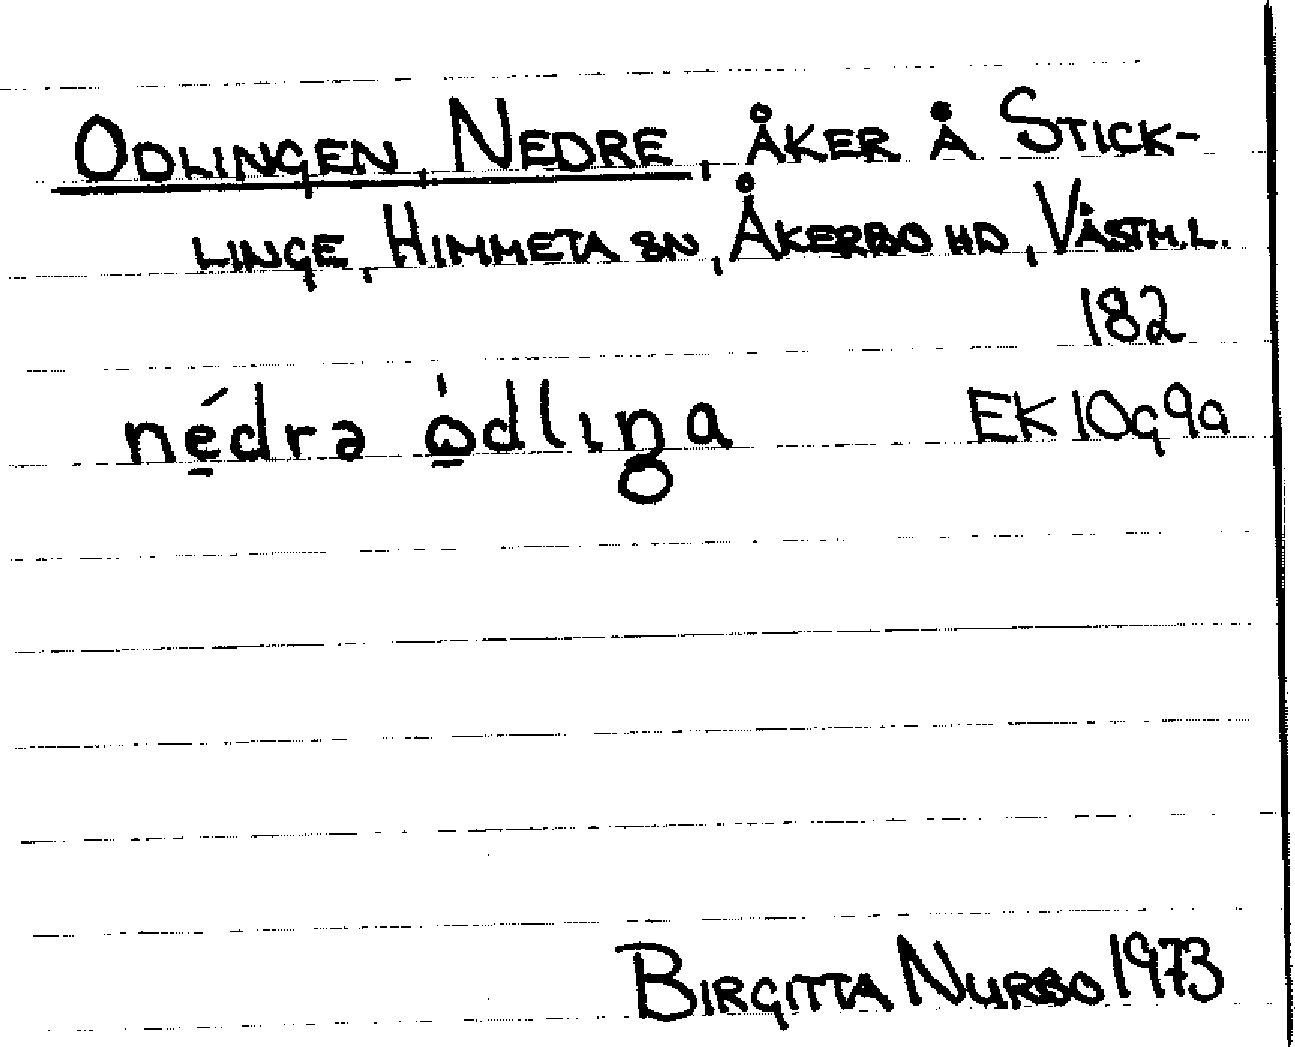 ODLINGEN, NEDRE, ÅKER Å STICK-
LINGE, HIMMETA SN, ÅKERBO HD, VÄSTM.L.
182
né̱drə ò̱dlıŋa EK10g9a
BIRGITTA NURBO 1973